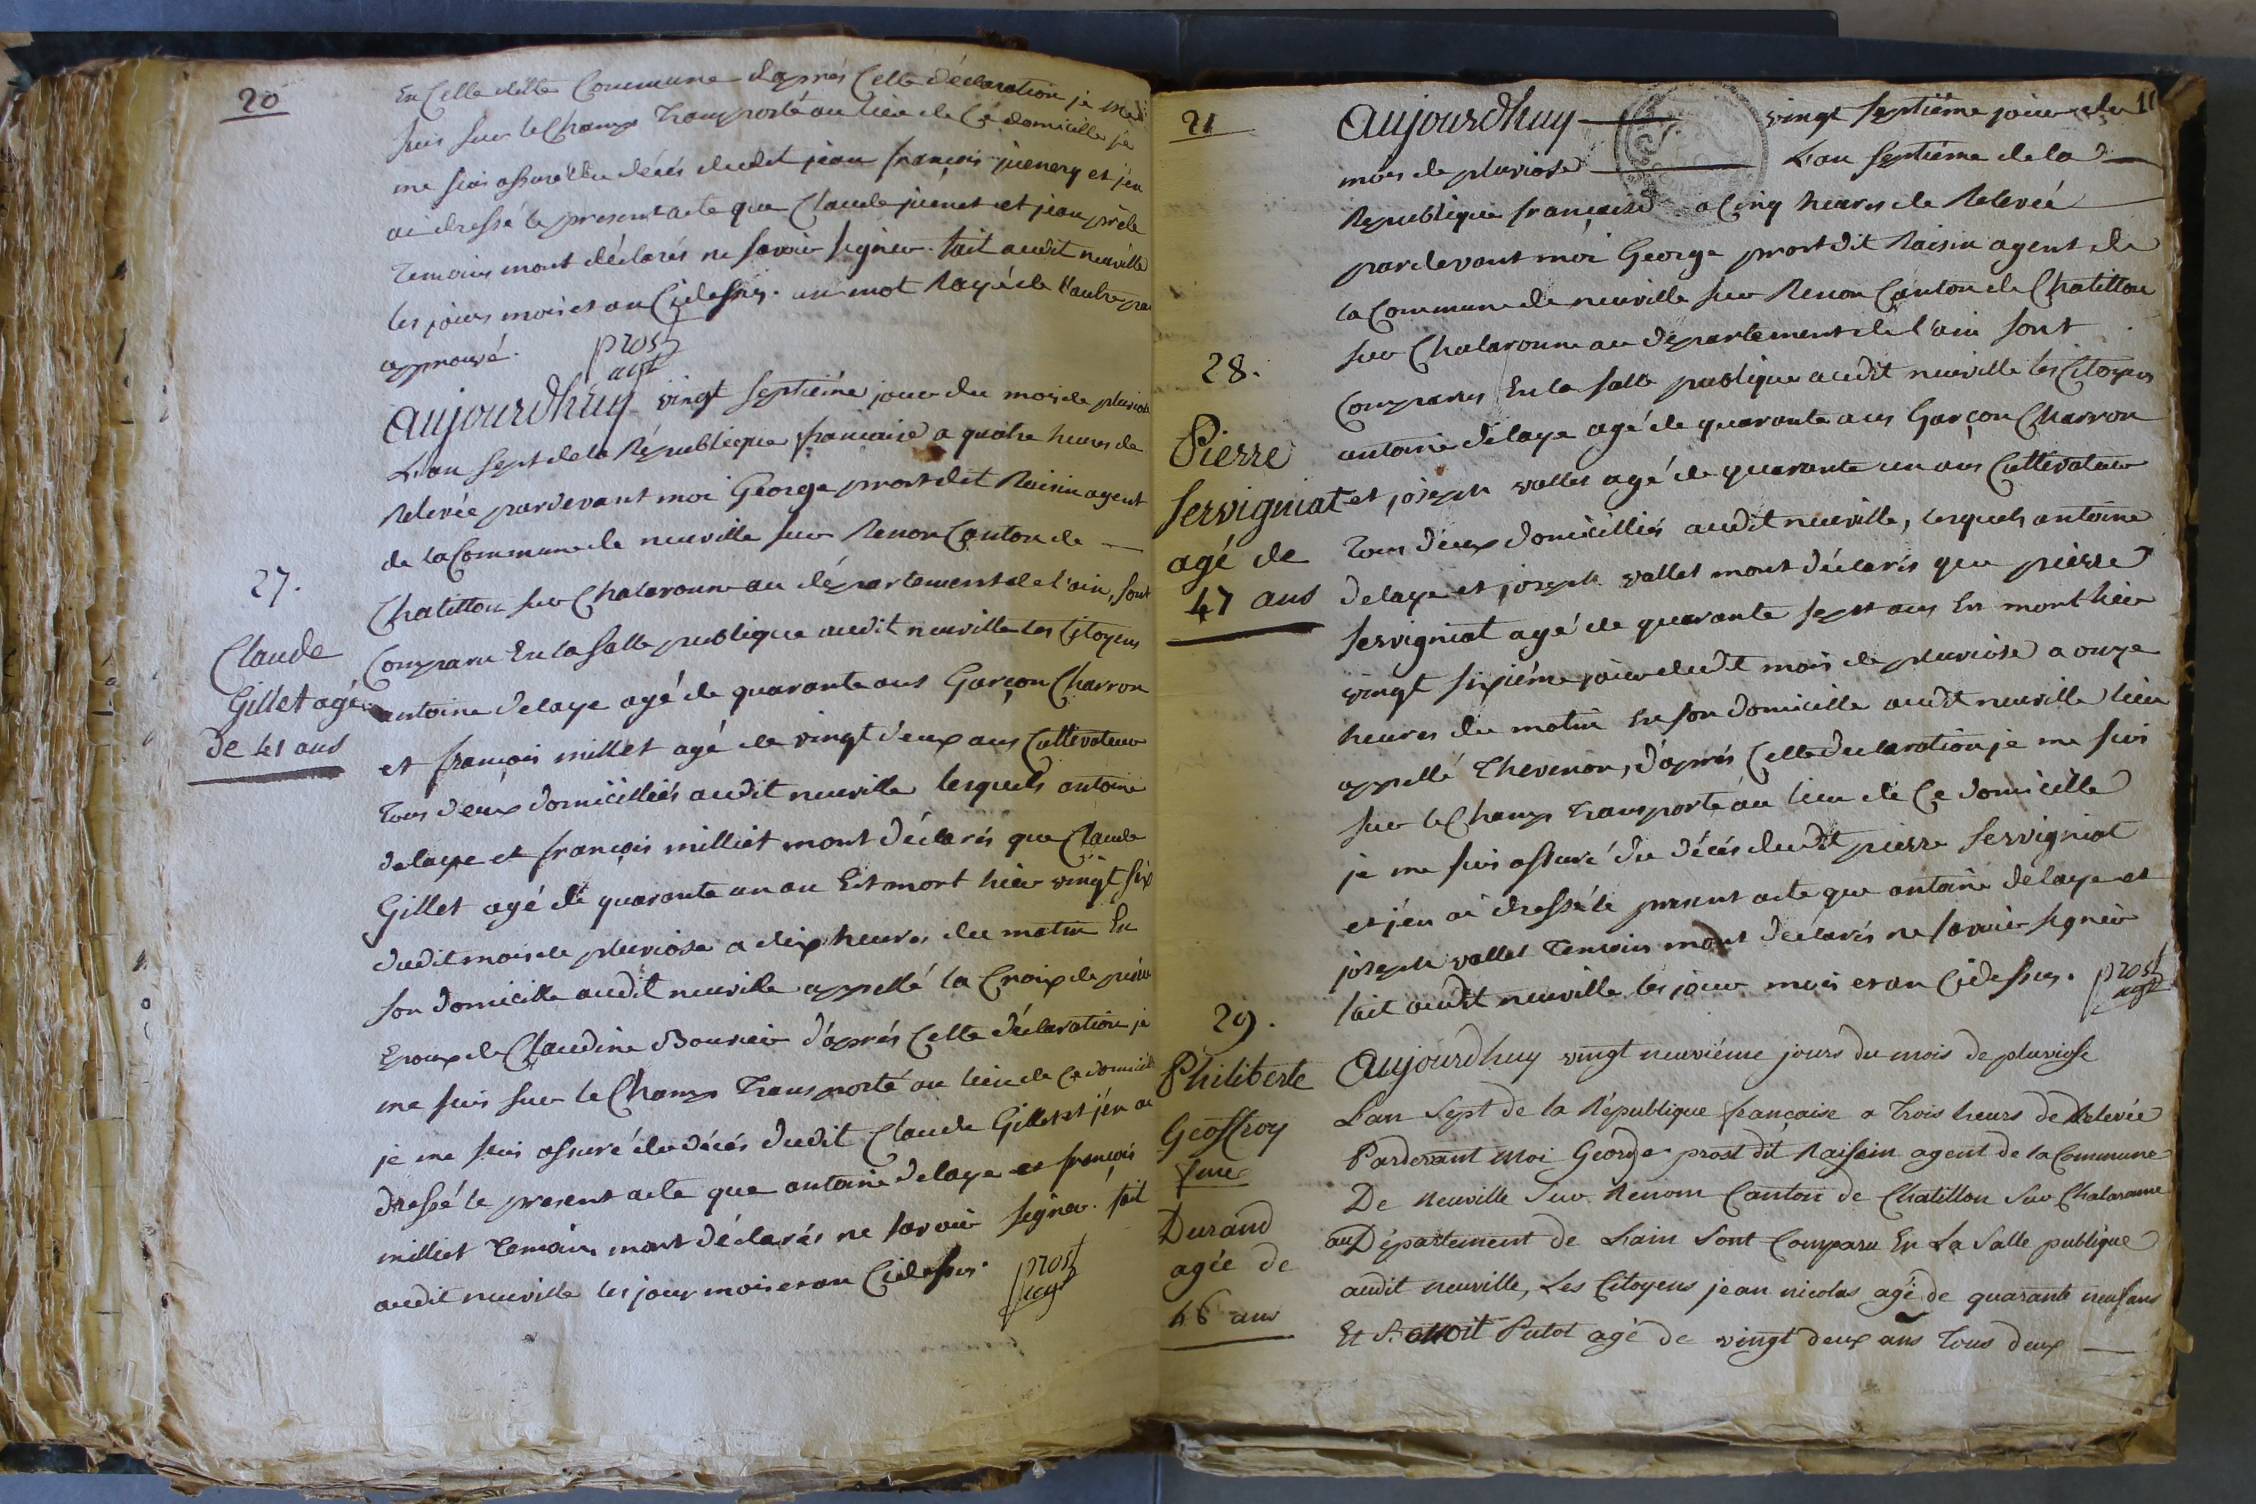 20
En Celle ditte Commune d'après Cette déclaration je me
suis sur le Champ Transporté au lieu de Ce domicille je
me suis assuré du décés dudit jean françois juenery et j'en
ai dressé le present acte que Claude juenet et jean
Temoins m'ont déclarés ne savoir signer. fait audit neuville
les jours mois et an Cidessus. un mot Rayé de l'autre
approuvé.
prost
agt
Aujourdhuy vingt septiéme jour du mois de pluviose
L'an sept de la République française a quatre heures de
Relevée pardevant moi George prost dit Raisin agent
de la Commune de neuville sur Renon Canton de
27.
Chatillon sur Chalaronne au département de l'ain, sont
Claude
Gillet agé
de 41 ans
Comparu En la salle publique audit neuville les Citoyens
antoine delaye agé de quarante ans Garçon Charron
et françois millet agé de vingt deux ans Cultivateur
Tous deux domicilliés audit neuville lesquels antoine
delaye et françois milliet m'ont déclarés que Claude
Gillet agé de quarante un an Est mort hier vingt six
dudit mois de pluviose a dix heures du matin En
son domicille audit neuville appellé la Croix de pierre
Epoux de Claudine Bouvier d'après Cette déclaration je
me suis sur le Champ Transporté au lieu de Ce domicille
je me suis assuré du décés dudit Claude Gillet et j'en ai
dressé le present acte que antoine delaye et françois
milliet Temoins m'ont déclarés ne savoir signer. fait
audit neuville les jour mois et an Cidessus.
prost
agt
21
Aujourdhuy vingt septiéme jour du
mois de pluviose L'an septiéme de la
Republique française a Cinq heures de Relevée
pardevant moi George prost dit Raisin agent de
la Commune de neuville sur Renon Canton de Chatillon
sur Chalaronne au département de l'ain sont
28.
Pierre
Servigniat
agé de
47 ans
Comparus En la salle publique audit neuville les Citoyens
antoine delaye agé de quarante ans Garçon Charron
et joseph vallet agé de quarante un ans Cultivateur
Tous deux domicilliés audit neuville, lesquels antoine
delaye et joseph vallet m'ont déclarés que pierre
Servigniat agé de quarante sept ans Est mort hier
vingt sixiéme jour dudit mois de pluviose a onze
heures du matin En son domicille audit neuville lieu
appellé Thevenon, d'après Cette declaration je me suis
sur le Champ Transporté au lieu de Ce domicille
je me suis assuré du décés dudit pierre Servigniat
et j'en ai dressé le present acte que antoine delaye et
joseph vallet Temoins m'ont déclarés ne savoir signer
fait audit neuville les jour mois et an Cidessus.
prost
agt
29.
Philiberte
Geoffroy
Durand
agée de
46 ans
Aujourdhuy vingt neuviéme jours du mois de pluviose
L'an Sept de la République française a Trois heurs de Relevée
Pardevant Moi George prost dit Raisin agent de la Commune
De Neuville Sur Renom Canton de Chatillon Sur Chalaronne
au Département de Lain Sont Comparu En La Salle publique
audit neuville, Les Citoyens jean nicolas agé de quarante neuf ans
Et Putot agé de vingt deux ans Tous deux